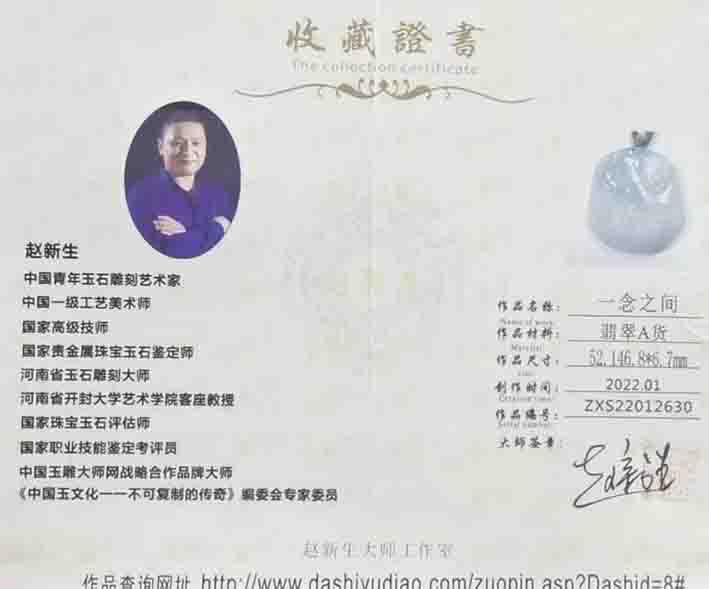 收藏證書
The collection certificate
赵新生
中国青年玉石雕刻艺术家
中国一级工艺美术师
国家高级技师
国家贵金属珠宝玉石鉴定师
河南省玉石雕刻大师
河南省开封大学艺术学院客座教授
国家珠宝玉石评估师
国家职业技能鉴定考评员
中国玉雕大师网战略合作品牌大师
《中国玉文化一一不可复制的传奇》编委会专家委员
作品名称： 一念之间
Name of work:
作品材料： 翡翠A货
Material:
作品尺寸： 52.146.8*6.7mm
size:
创作时间： 2022.01
Creation time:
作品编号： ZXS22012630
Serial number:
大师签章：
赵新生大师工作室
作品查询网址 http://www.dashiyudiao.com/zuopin.asp?Dashid=8#